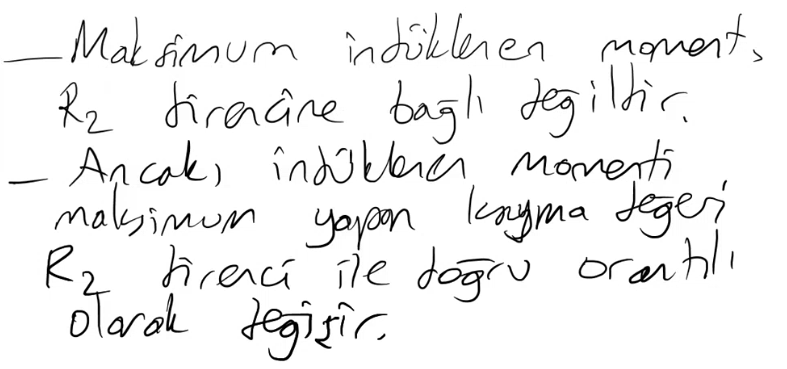 — Maksimum indüklenen moment,
R₂ direncine bağlı değildir.
— Ancak, indüklenen momenti
maksimum yapan kayma değeri
R₂ direnci ile doğru orantılı
olarak değişir.